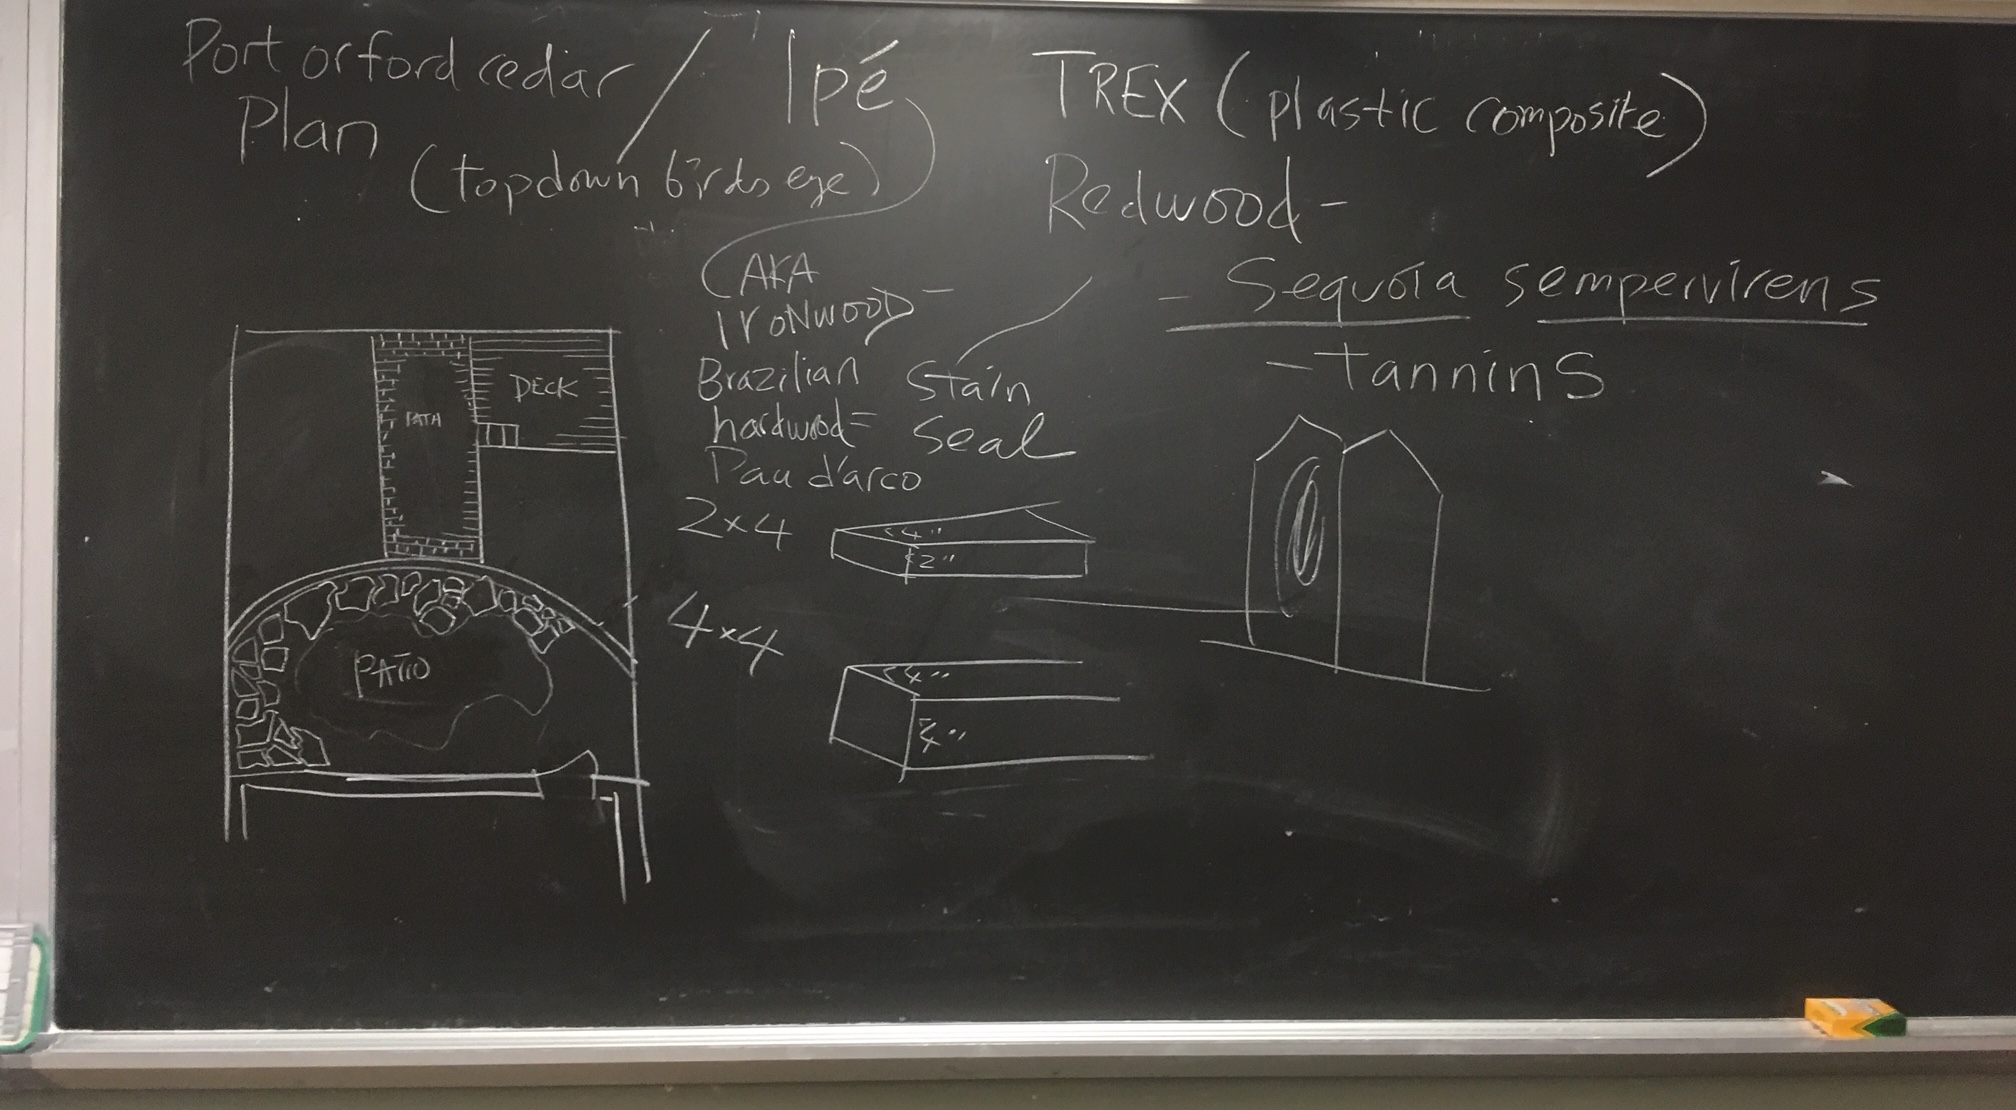 Port orford cedar / Ipé
Plan
(topdown birds eye)
TREX (plastic composite)
Redwood -
- Sequoia sempervirens
- Tannins
(AKA
IRONWOOD -
Brazilian
hardwood =
Pau d'arco
Stain
Seal
DECK
PATH
PATIO
2x4
4"
2"
4x4
4"
4"